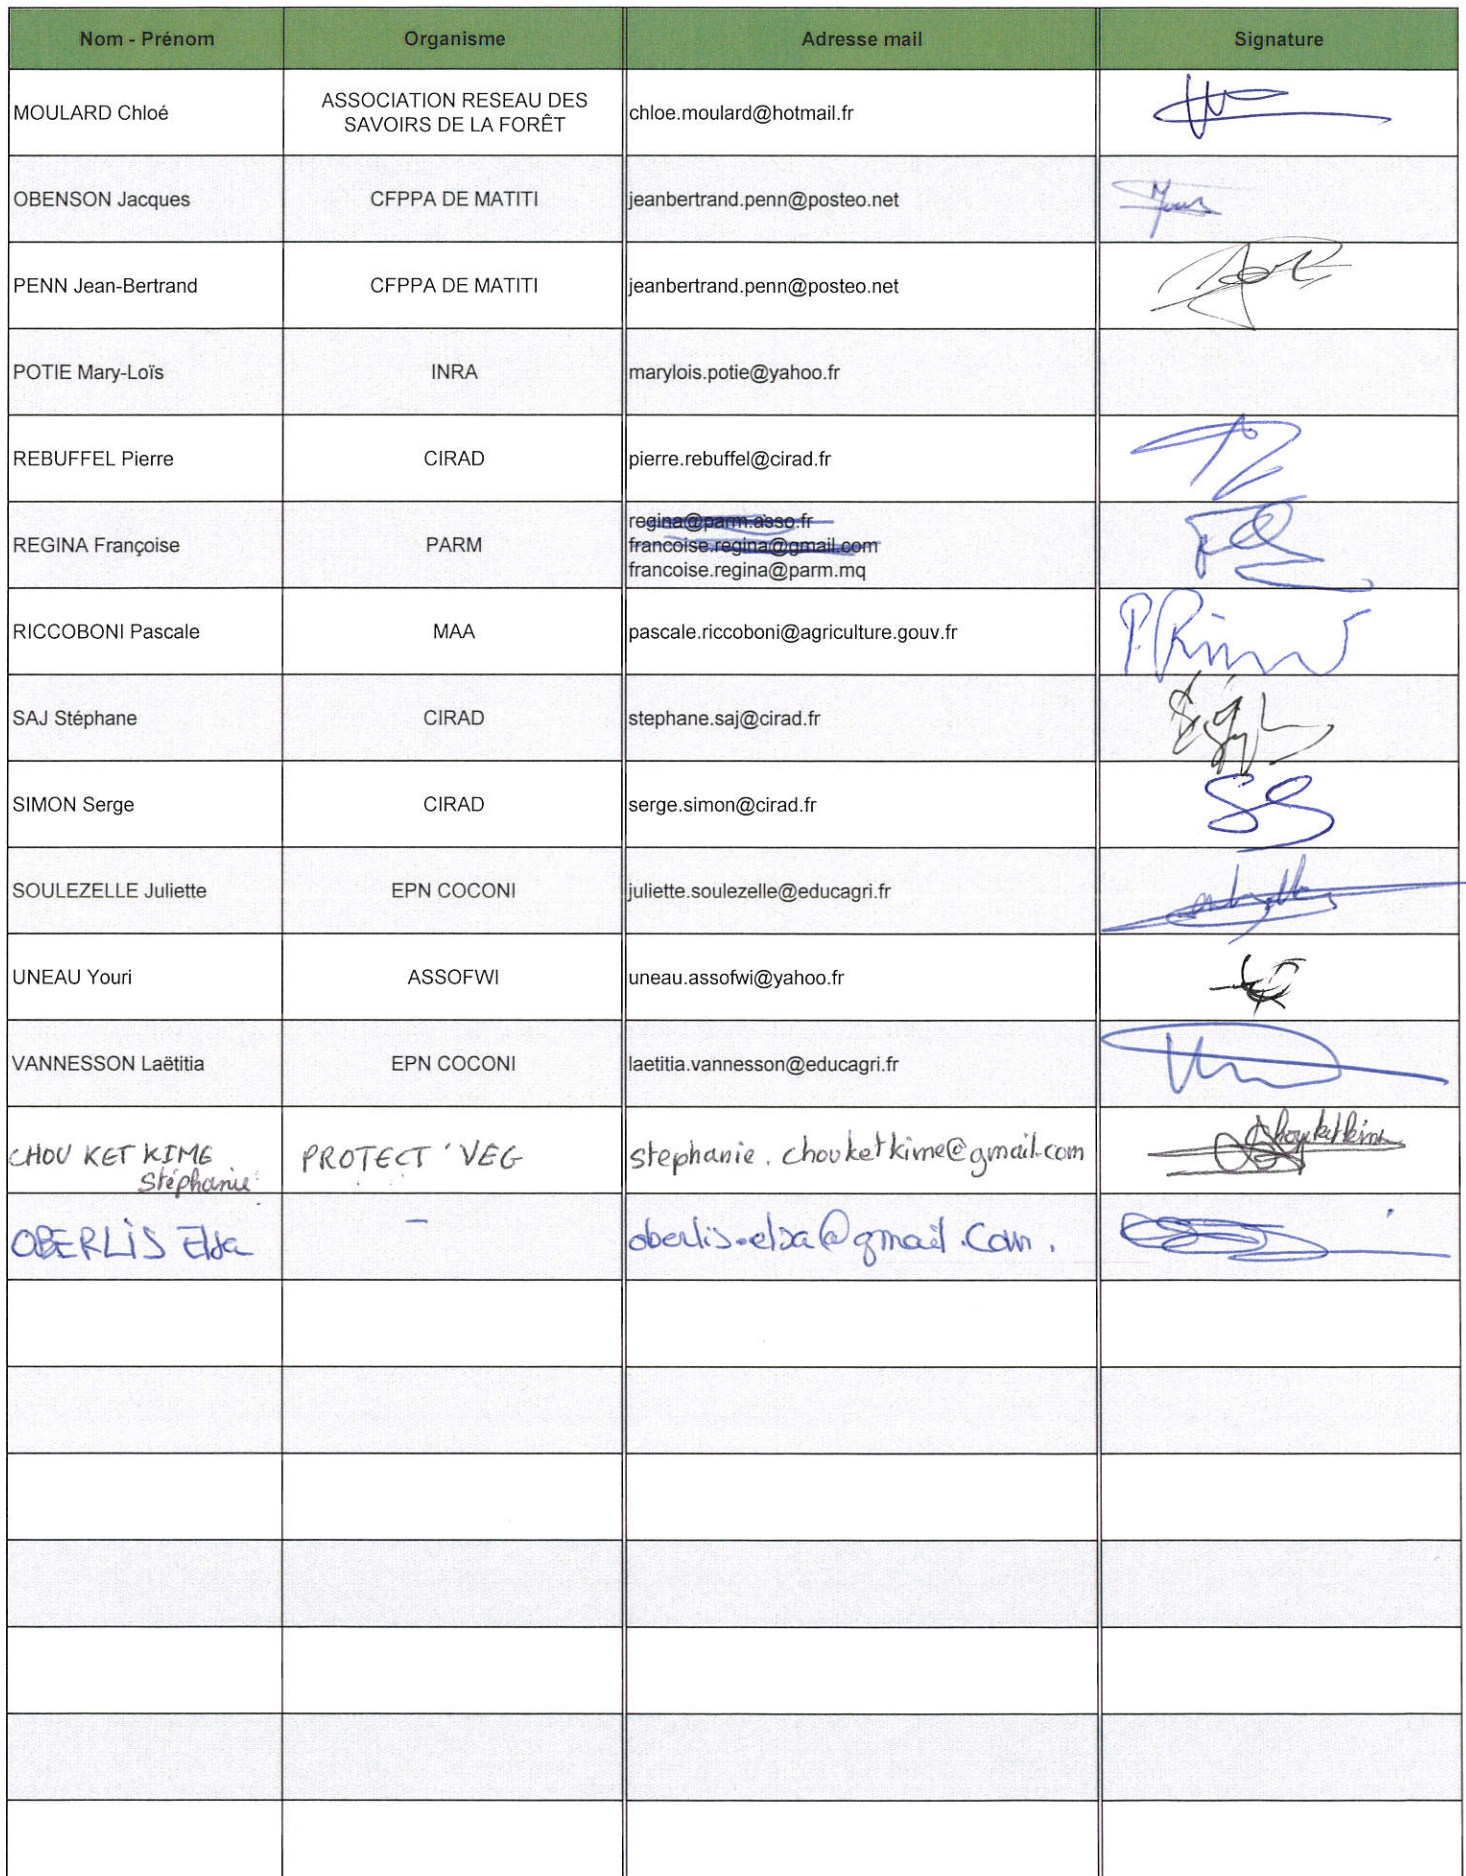 Nom - Prénom Organisme Adresse mail Signature
MOULARD Chloé ASSOCIATION RESEAU DES SAVOIRS DE LA FORÊT chloe.moulard@hotmail.fr
OBENSON Jacques CFPPA DE MATITI jeanbertrand.penn@posteo.net
PENN Jean-Bertrand CFPPA DE MATITI jeanbertrand.penn@posteo.net
POTIE Mary-Loïs INRA marylois.potie@yahoo.fr
REBUFFEL Pierre CIRAD pierre.rebuffel@cirad.fr
regina@parm.asso.fr
REGINA Françoise PARM francoise.regina@gmail.com
francoise.regina@parm.mq
RICCOBONI Pascale MAA pascale.riccoboni@agriculture.gouv.fr
SAJ Stéphane CIRAD stephane.saj@cirad.fr
SIMON Serge CIRAD serge.simon@cirad.fr
SOULEZELLE Juliette EPN COCONI juliette.soulezelle@educagri.fr
UNEAU Youri ASSOFWI uneau.assofwi@yahoo.fr
VANNESSON Laëtitia EPN COCONI laetitia.vannesson@educagri.fr
CHOU KET KIME Stéphanie PROTECT'VEG stephanie.chouketkime@gmail.com Chouketkime
OBERLIS Elsa - oberlis.elsa@gmail.com.